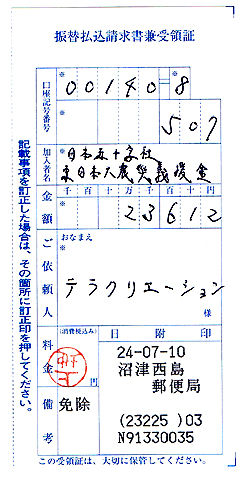 振替払込請求書兼受領証
口座記号番号
00140-8
507
加入者名
日本赤十字社
東日本大震災義援金
金額
千百十万千百十円
23612
ご依頼人
おなまえ
テラクリエーション
様
料金
(消費税込み)
円
日附印
24-07-10
沼津西島
郵便局
(23225)03
N91330035
備考
免除
この受領証は、大切に保管してください。
記載事項を訂正した場合は、その箇所に訂正印を押してください。